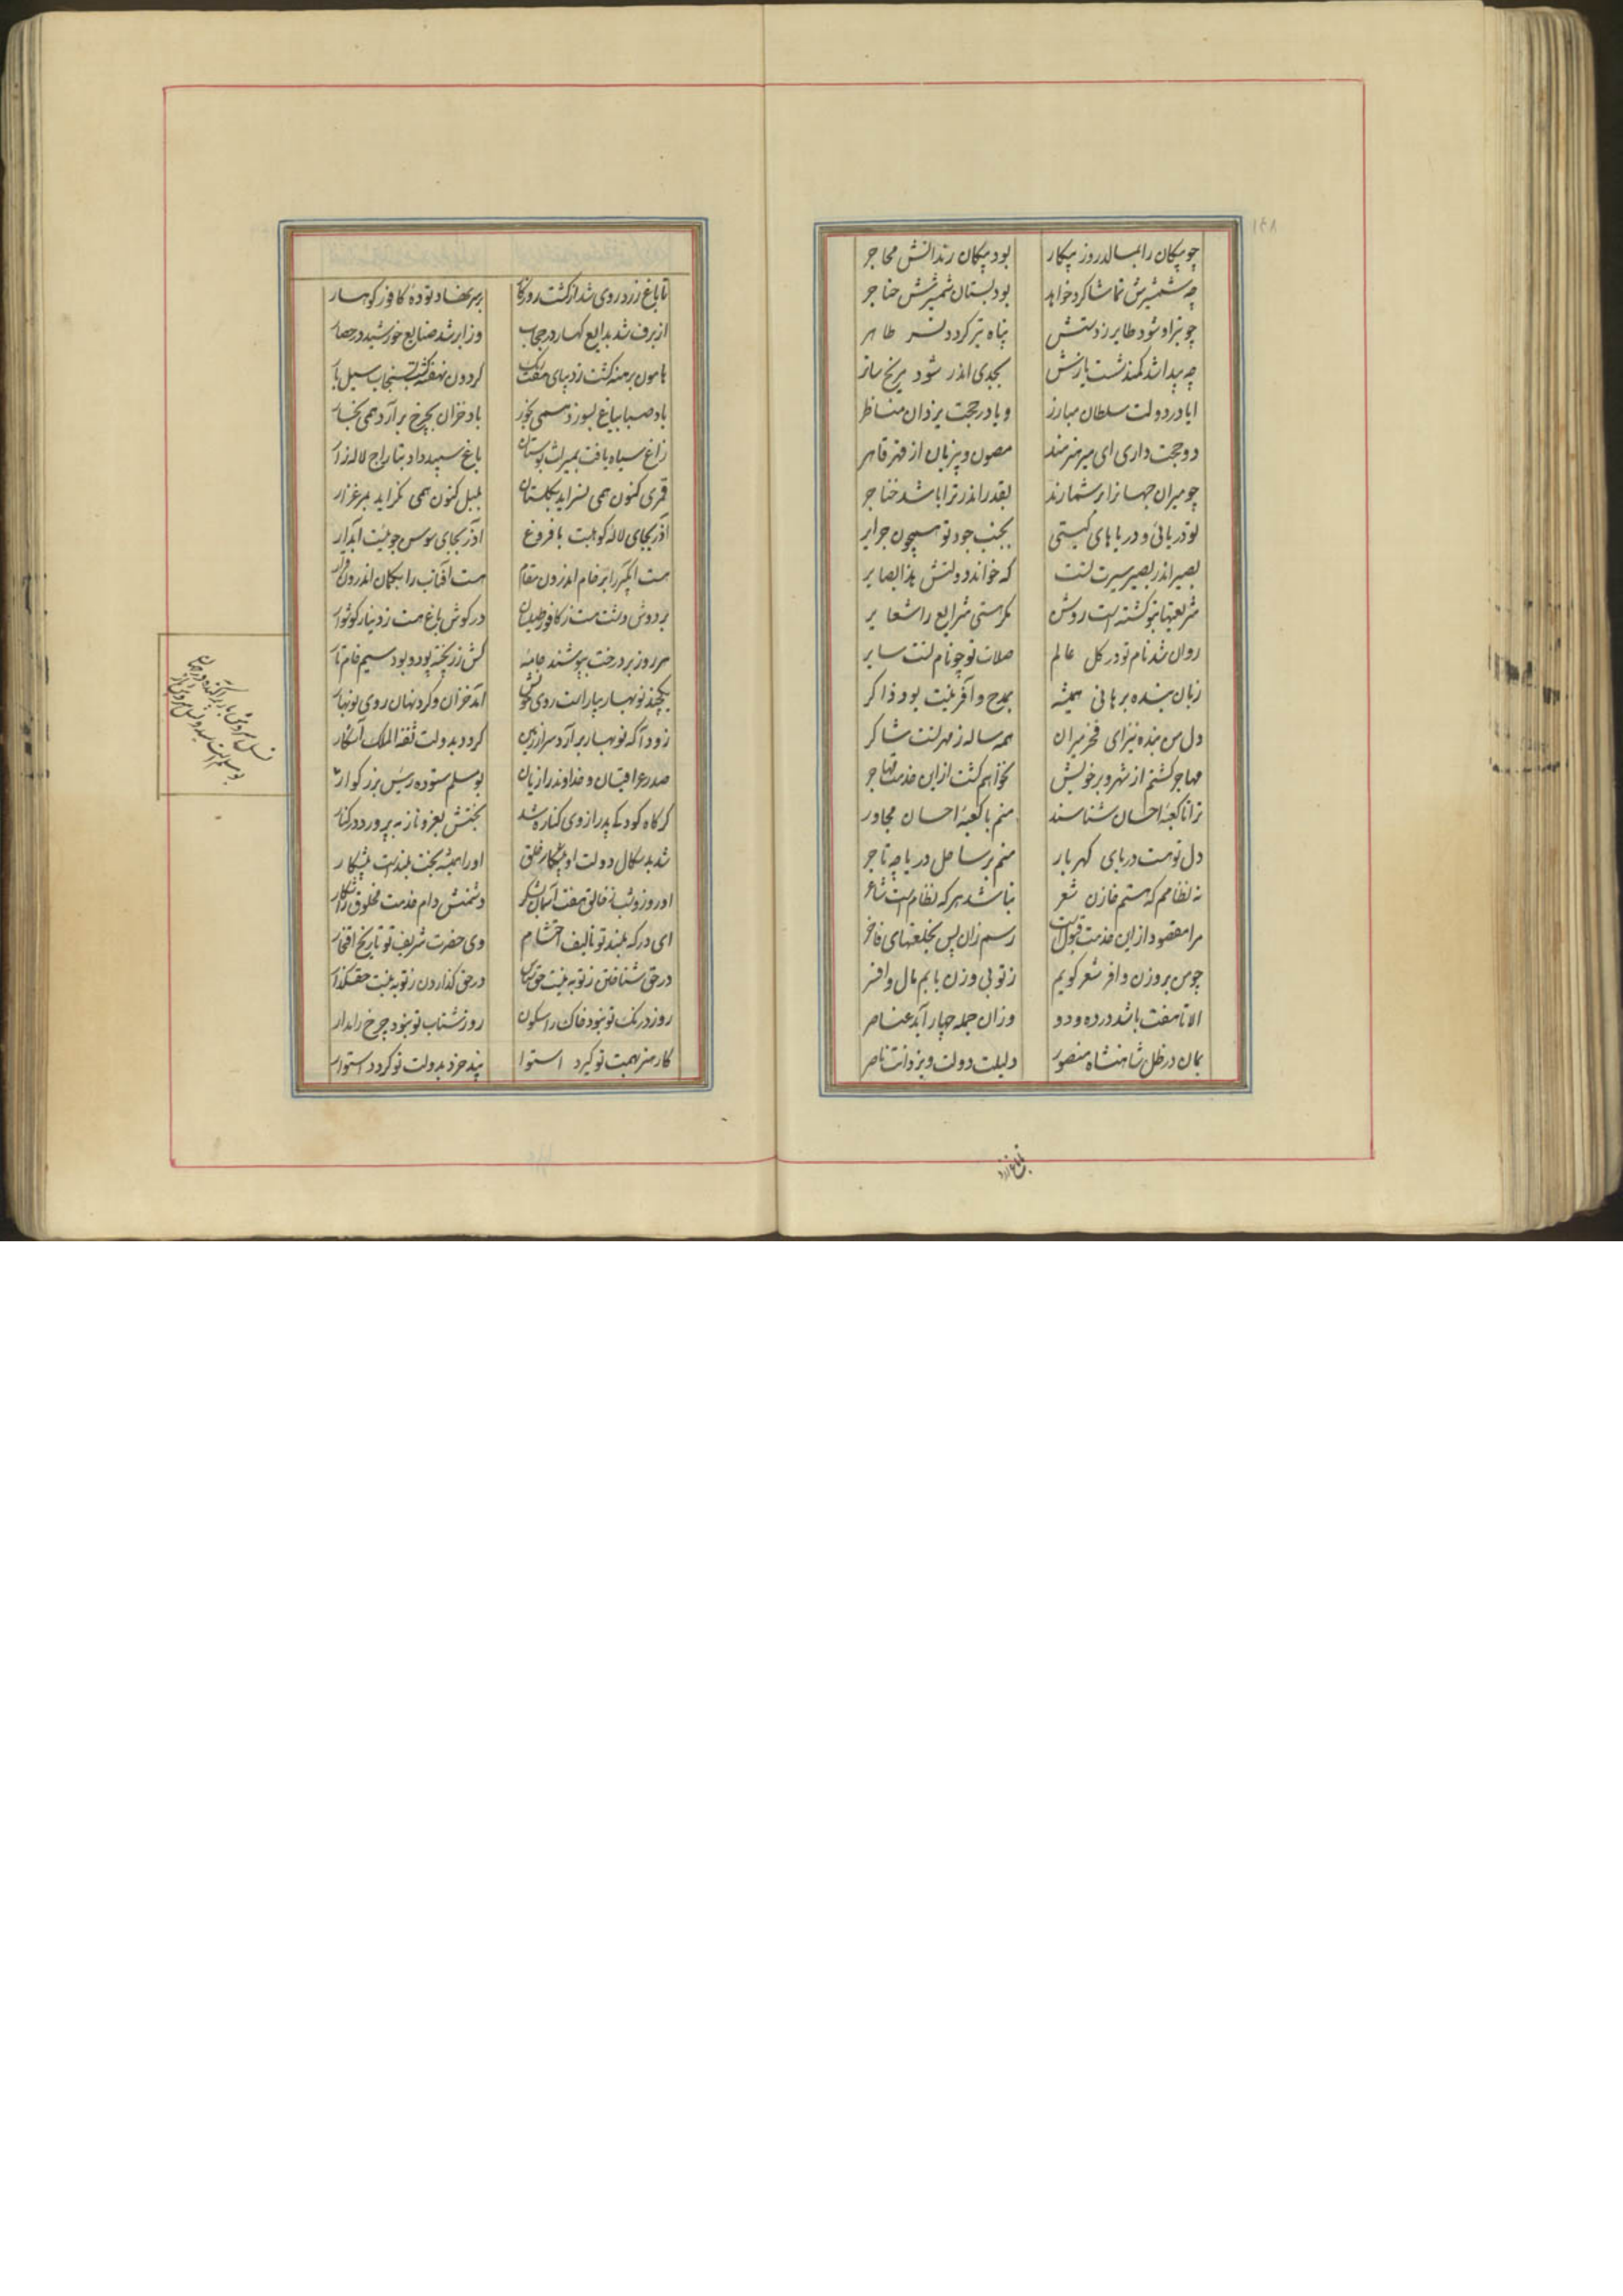 چو پیکان را بمالد روز پیکار بود پیکان زندانش محاجر
چه شمشیرش تماشا کرد خواهد بود بستان شمیرش حناجر
چو تیر او شود طایر ز دستش پناه تیر کردد نسر طاهر
چه پیدا شد کمند شست یازش بجدی اندر شود مریخ ساتر
ایا در دولت سلطان مبارز و یا در حجت یزدان مناظر
دو حجت داری ای میر هنرمند مصون و پر زبان از قهر قاهر
چو میران جهانرا بر شمارند بقدر اندر ترا باشد خناجر
تو دریائی و دریاهای کیتی بجنب جود تو همچون جزایر
بصیر اندر بصیر سیرت تست که خواند دولتش بذا بصایر
شریعتها بتو کشته است روشن مکر هستی شرایع را شعایر
روان شد نام تو در کل عالم صلات تو چو نام تست سایر
زبان بنده برهانی همیشه بمدح و آفرینت بود ذاکر
دل من بنده نیز ای فخر میران همه ساله ز مهر تست شاکر
مهاجر کشتم از شهر و بر خویش نخواهم کشت از این خدمت مهاجر
ترا تا کعبه احسان شناسند منم با کعبه احسان مجاور
دل تو هست دریای کهربار منم بر ساحل دریا چه تاجر
نه نظامم که هستم خازن شعر نباشد هر که نظام است شاعر
مرا مقصود از این خدمت قبولست رسم زان پس بخلعتهای فاخر
چو من بر وزن وافر شعر کویم ز تو بی وزن یابم مال وافر
الا تا هفت باشد در ده و دو وزان جمله چهار آید عناصر
بمان در ظل شاهنشاه منصور دلیلت دولت و یزدانت ناصر
تا باغ زرد
تا باغ زرد روی شد از کشت روزکار بر سر نهاد توده کافور کوهسار
از برف شد بدایع کهسار در حجاب وز ابر شد صنایع خورشید در حصار
هامون برهنه کشت ز دیبای هفت رنک کردون نهفته کشت بسنجاب سیل بار
باد صبا بباغ بسوزد همی بخور باد خزان بچرخ برآرد همی بخار
زاغ سیاه یافت بمیراث بوستان باغ سپید داد بتاراج لاله زار
قمری کنون همی نسراید بکلستان بلبل کنون همی نکراید بمرغزار
آذر بجای لاله کوهیست با فروغ آذر بجای سوسن جوئیست آبدار
هست ابکیر را بر خام اندرون مقام هست آفتاب را بکمان اندرون قرار
بر دوش دشت هست ز کافور طیلسان در کوش باغ هست ز دینار کوشوار
هر روز بر درخت بپوشند جامه کش زر پخته پود و بود سیم خام تار
یکچند نوبهار بیاراست روی خویش آمد خزان و کرد نهان روی نوبهار
زود آکه نوبهار برآرد سر از زمین کردد بدولت ثقة الملک آشکار
صدر عراقیان و خداوند رازیان بوسلم ستوده رئیس بزرکوار
کر کاه کودکی پدر از وی کناره شد بختش بعز و ناز بپرورد در کنار
شد بد سکال دولت او پیشکار خلق او را همیشه بخت بلندست پیشکار
او روز و شب ز خالق هفت آسمان بشکر دشمنش دام خدمت مخلوق را شکار
ای درکه بلند تو تالیف احتشام وی حضرت شریف تو تاریخ افتخار
در حق شناختن ز تو به نیست حق شناس در حق کذاردن ز تو به نیست حقکذار
روز درنک تو نبود خاک را سکون روز شتاب تو نبود چرخ را مدار
کار هنر بهمت تو کیرد استوا پند خرد بدولت تو کردد استوار